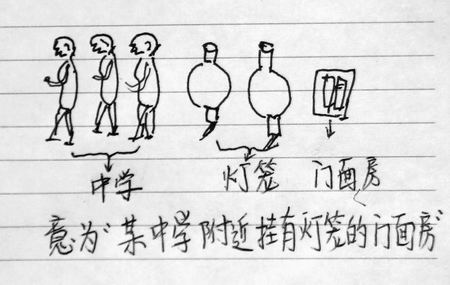 中学 灯笼 门面房
意为“某中学附近挂有灯笼的门面房”